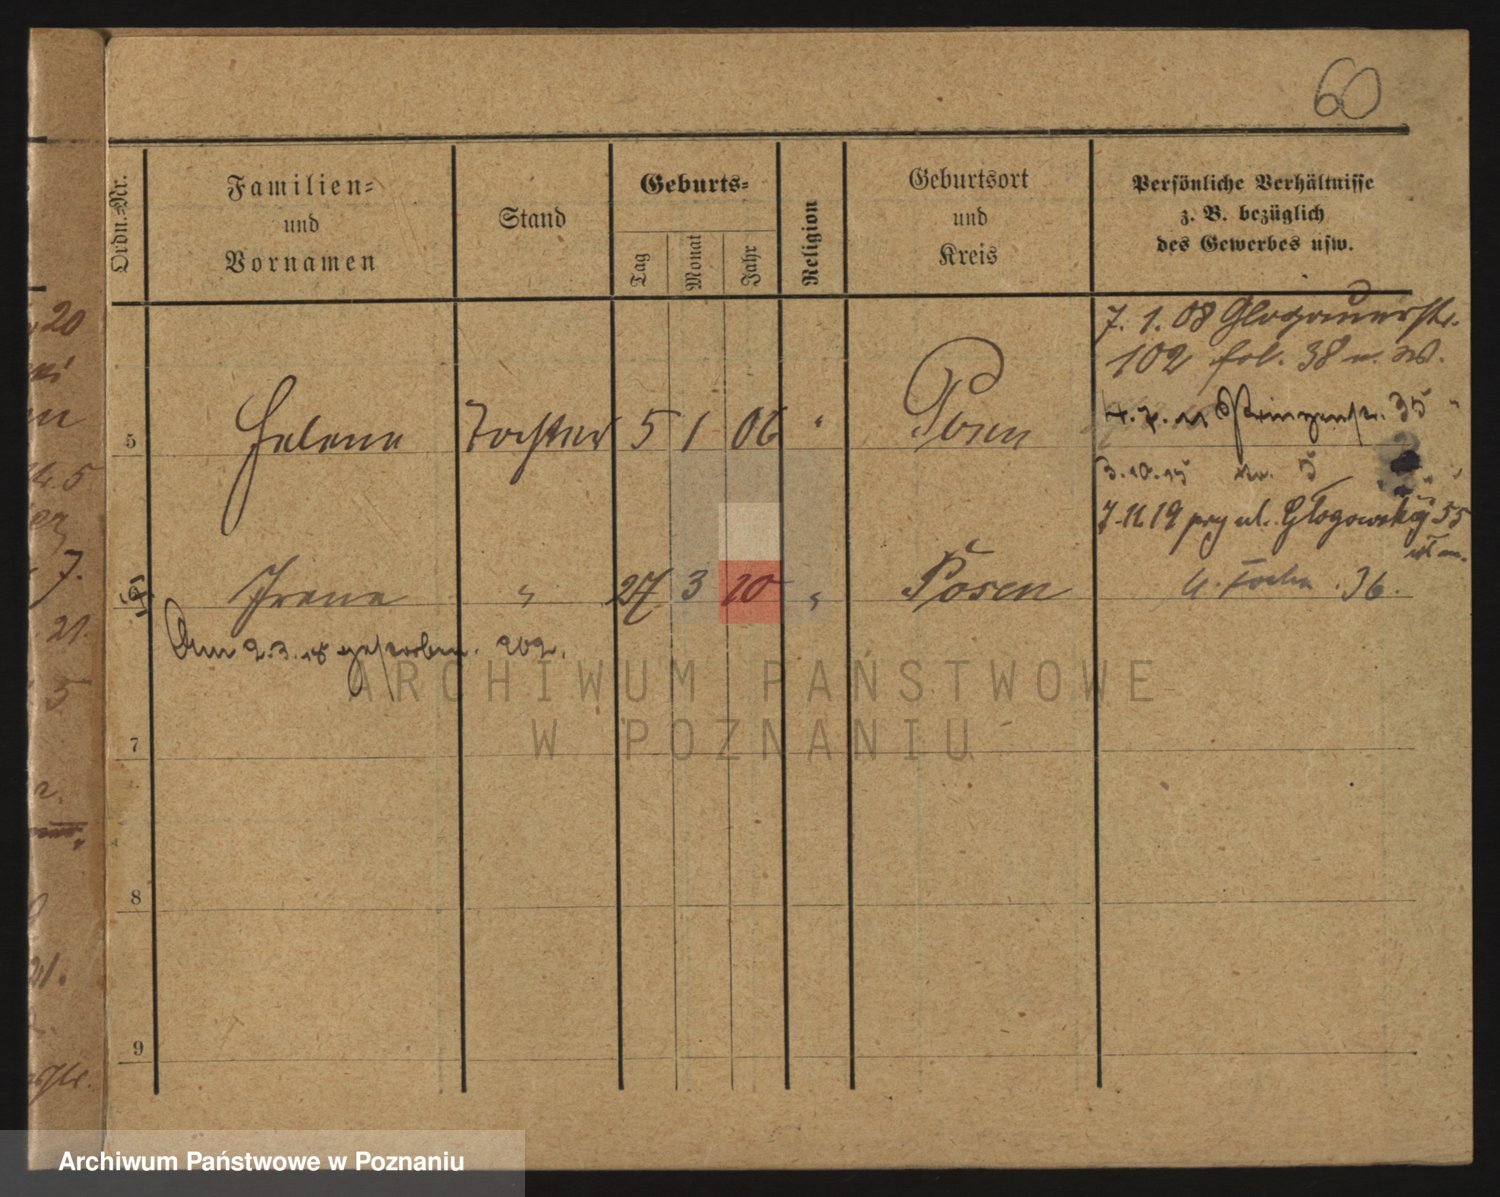 60
Ordn.-Nr.
Familien-
und
Vornamen
Stand
Geburts-
Tag
Monat
Jahr
Religion
Geburtsort
und
Kreis
Persönliche Verhältnisse
z. B. bezüglich
des Gewerbes usw.
7. 1. 08 Glogauerstr.
102 fol. 38 u. w.
5 Helene Tochter 5 1 06 " Posen
35 "
3.10.15 5 " "
7.11.19 przy ul. Głogowskiej 55
(6) Irene " 27 3 10 " Posen
36.
Am 2.3.18 gestorben. 202.
7
8
9
20
5
7.
21.
5
21.
ARCHIWUM PAŃSTWOWE
W POZNANIU
Archiwum Państwowe w Poznaniu